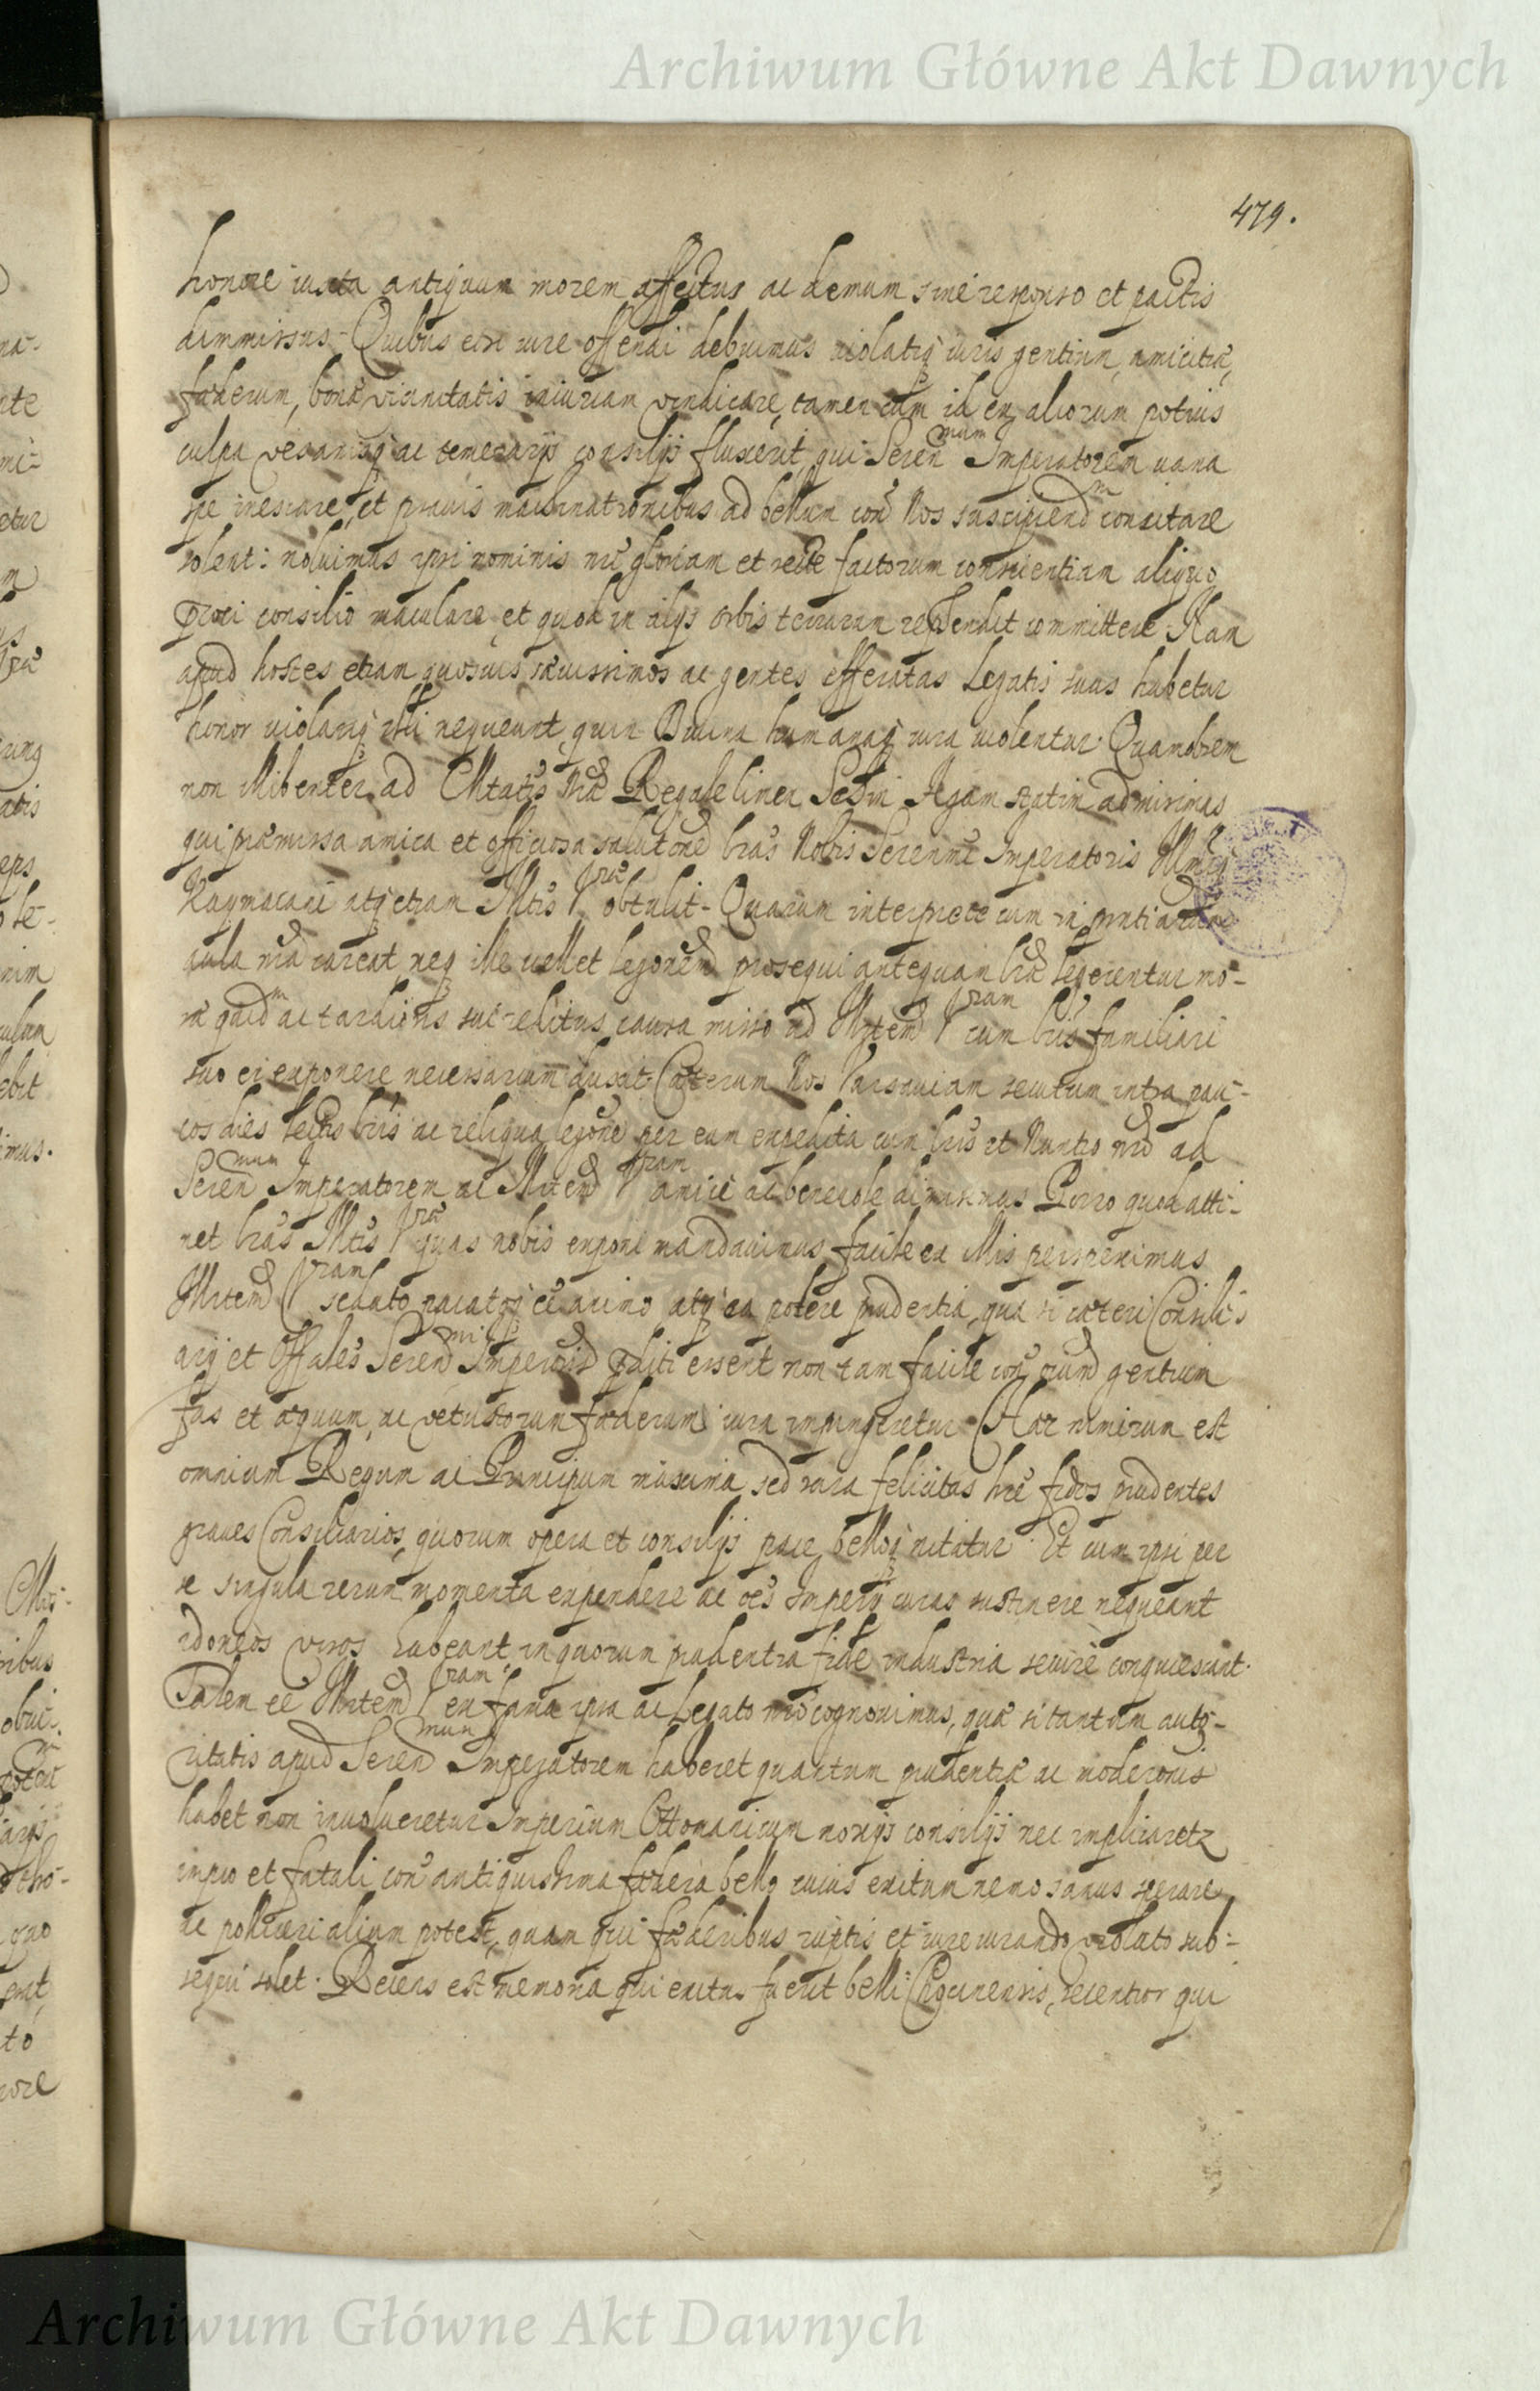 Archiwum Główne Akt Dawnych
479.
honore iuxta antiquum morem affectus ac demum sine responso et pactis
dimmissus. Quibus etsi iure offendi debuimus violatiq iuris gentium, amicitiæ,
fœderum, bonæ vicinitatis iniuriam vindicare, tamen cum id ex aliorum potius
culpa vesanisq ac temerarijs consilijs fluxerit, qui Seren mum Imperatorem vana
spe inescare, et pravis machinationibus ad bellum con Nos suscipiend m concitare
solent: noluimus ipsi nominis nri gloriam et recte factorum conscientiam aliquo
consilio maculare et quod in alijs orbis terrarum committere. Nam
apud hostes etiam quosuis sæuissimos ac gentes efferatas Legatis suus habetur
honor violariq illi nequeunt, quin Diuina humanaq iura violentur. Quamobrem
non illibenter ad Mtatis Vræ Regale limen Sefin Agam statim admisimus
qui præmissa amica et officiosa salutone lras Nobis Serenmi Imperatoris
Kaymacani atq etiam Mtis Vræ obtulit. Quarum interprete cum in pntiarum
aula nra careat neq ille vellet legonem prosequi antequam lræ legerentur mo-
ræ ac tardioris sui reditus causa misso ad Mtem Vram cum lris familiari
suo ei exponere necessarium duxit. Cæterum Nos Varsauiam secutum intra pau-
cos dies lectis lris ac reliqua legone per eum expedita cum lris et Nuntio nro ad
Seren mum Imperatorem ac Mtem Vram amice ac beneuole dimisimus. Porro quod atti-
net lras Mtis Vræ quas nobis exponi mandauimus, facile ex illis perspeximus
Mtem Vram sedato pacatoq eê animo atq ea pollere prudentia, qua si cæteri Consili-
arij et Offales Seren mi Imperoris præditi essent non tam facile con oium gentium
fas et æquum, ac vetustorum fœderum iura impingeretur. Hæc nimirum est
omnium Regum ac Principum maxima sed rara felicitas hre fidos prudentes
graues Consiliarios, quorum opera et consilijs pace belloq nitatur. Et cum ipsi per
se singula rerum momenta expendere ac oes Imperij curas sustinere nequeant
idoneos viros habeant in quorum prudentia fide industria secure conquiescant.
Talem eê Mtem Vram ex fama ipsa ac Legato nro cognouimus, quæ si tantum auto-
ritatis apud Seren mum Imperatorem haberet quantum prudentiæ ac moderonis
habet non inuolueretur Imperium Ottomanicum noxijs consilijs nec implicaretz
impio et fatali con antiquissima fœdera bello cuius exitum nemo sanus sperare
ac polliceri alium potest, quam qui fœderibus ruptis et iureiurando violato sub-
sequi solet. Recens est memoria qui exitus fuerit belli Chocimensis, recentior qui
Archiwum Główne Akt Dawnych